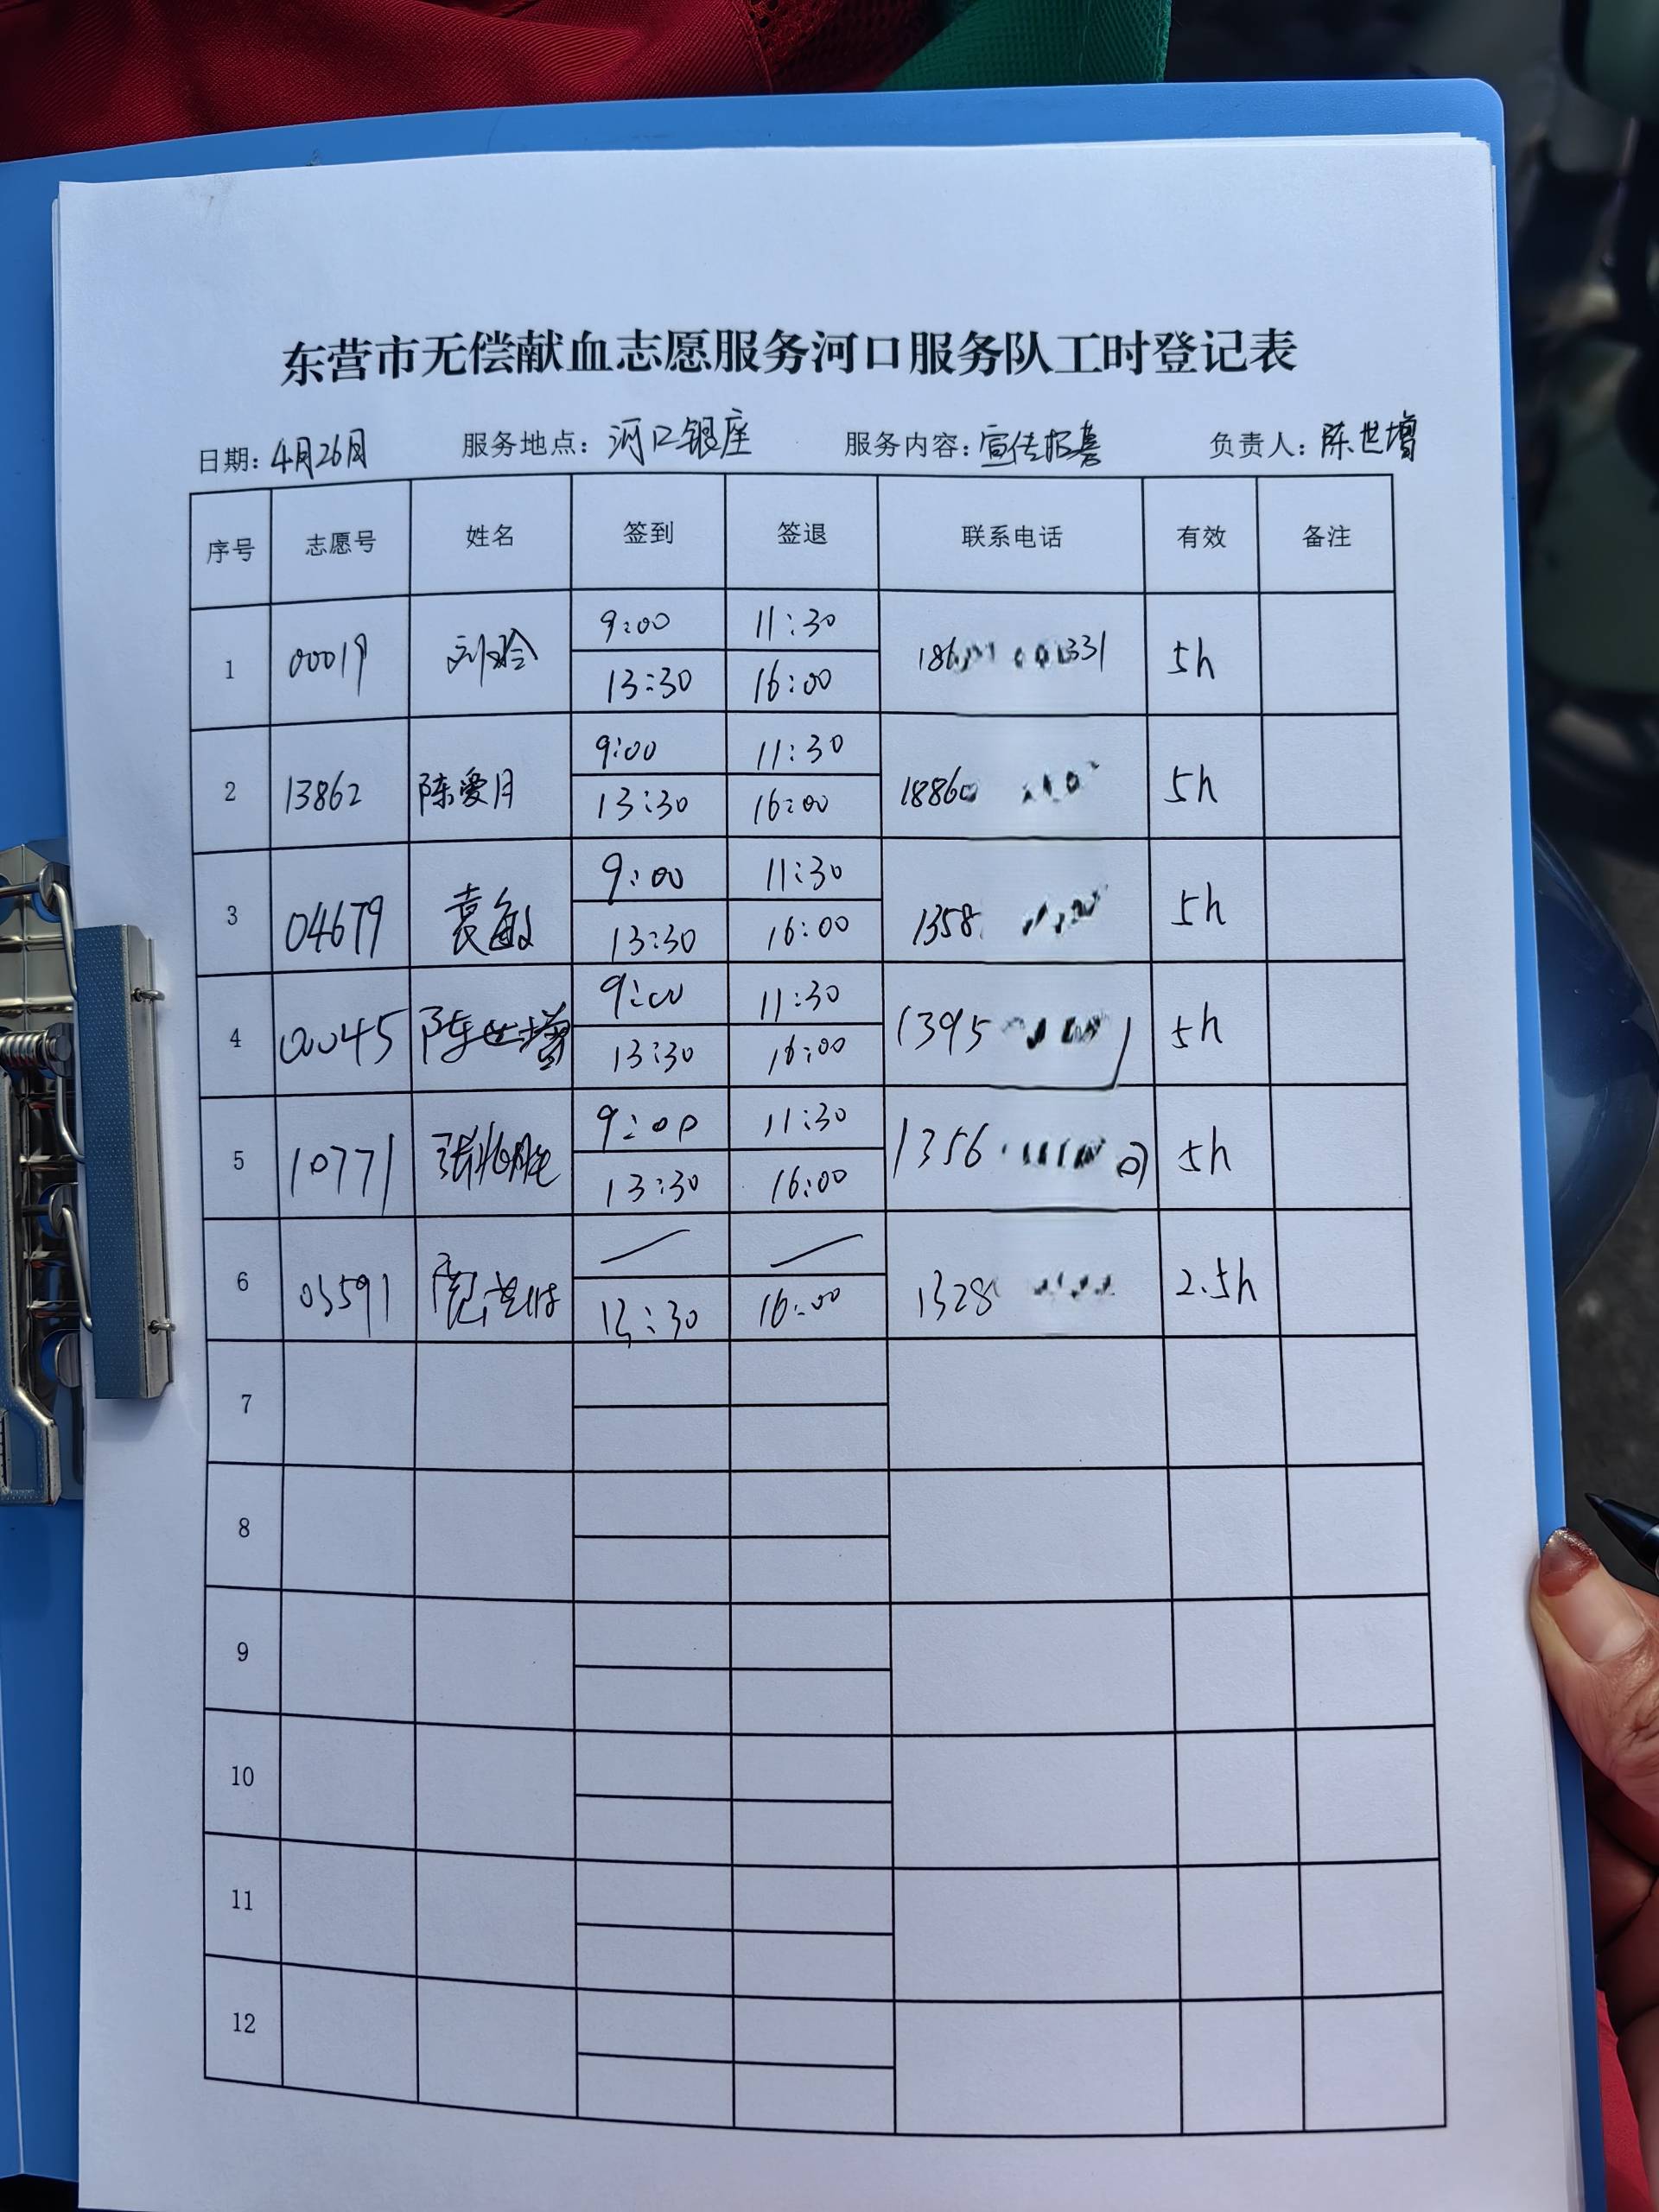 东营市无偿献血志愿服务河口服务队工时登记表
日期：4月26日 服务地点：河口银座 服务内容：宣传招募 负责人：陈世增
序号 志愿号 姓名 签到 签退 联系电话 有效 备注
1 00019 刘玲 9:00 11:30 5h
13:30 16:00
2 13862 陈爱月 9:00 11:30 18860 5h
13:30 16:00
3 04679 袁敏 9:00 11:30 1358 5h
13:30 16:00
4 00045 陈世增 9:00 11:30 1395 5h
13:30 16:00
5 10771 9:00 11:30 1356 5h
13:30 16:00
6 03591 1328 2.5h
13:30 16:00
7
8
9
10
11
12